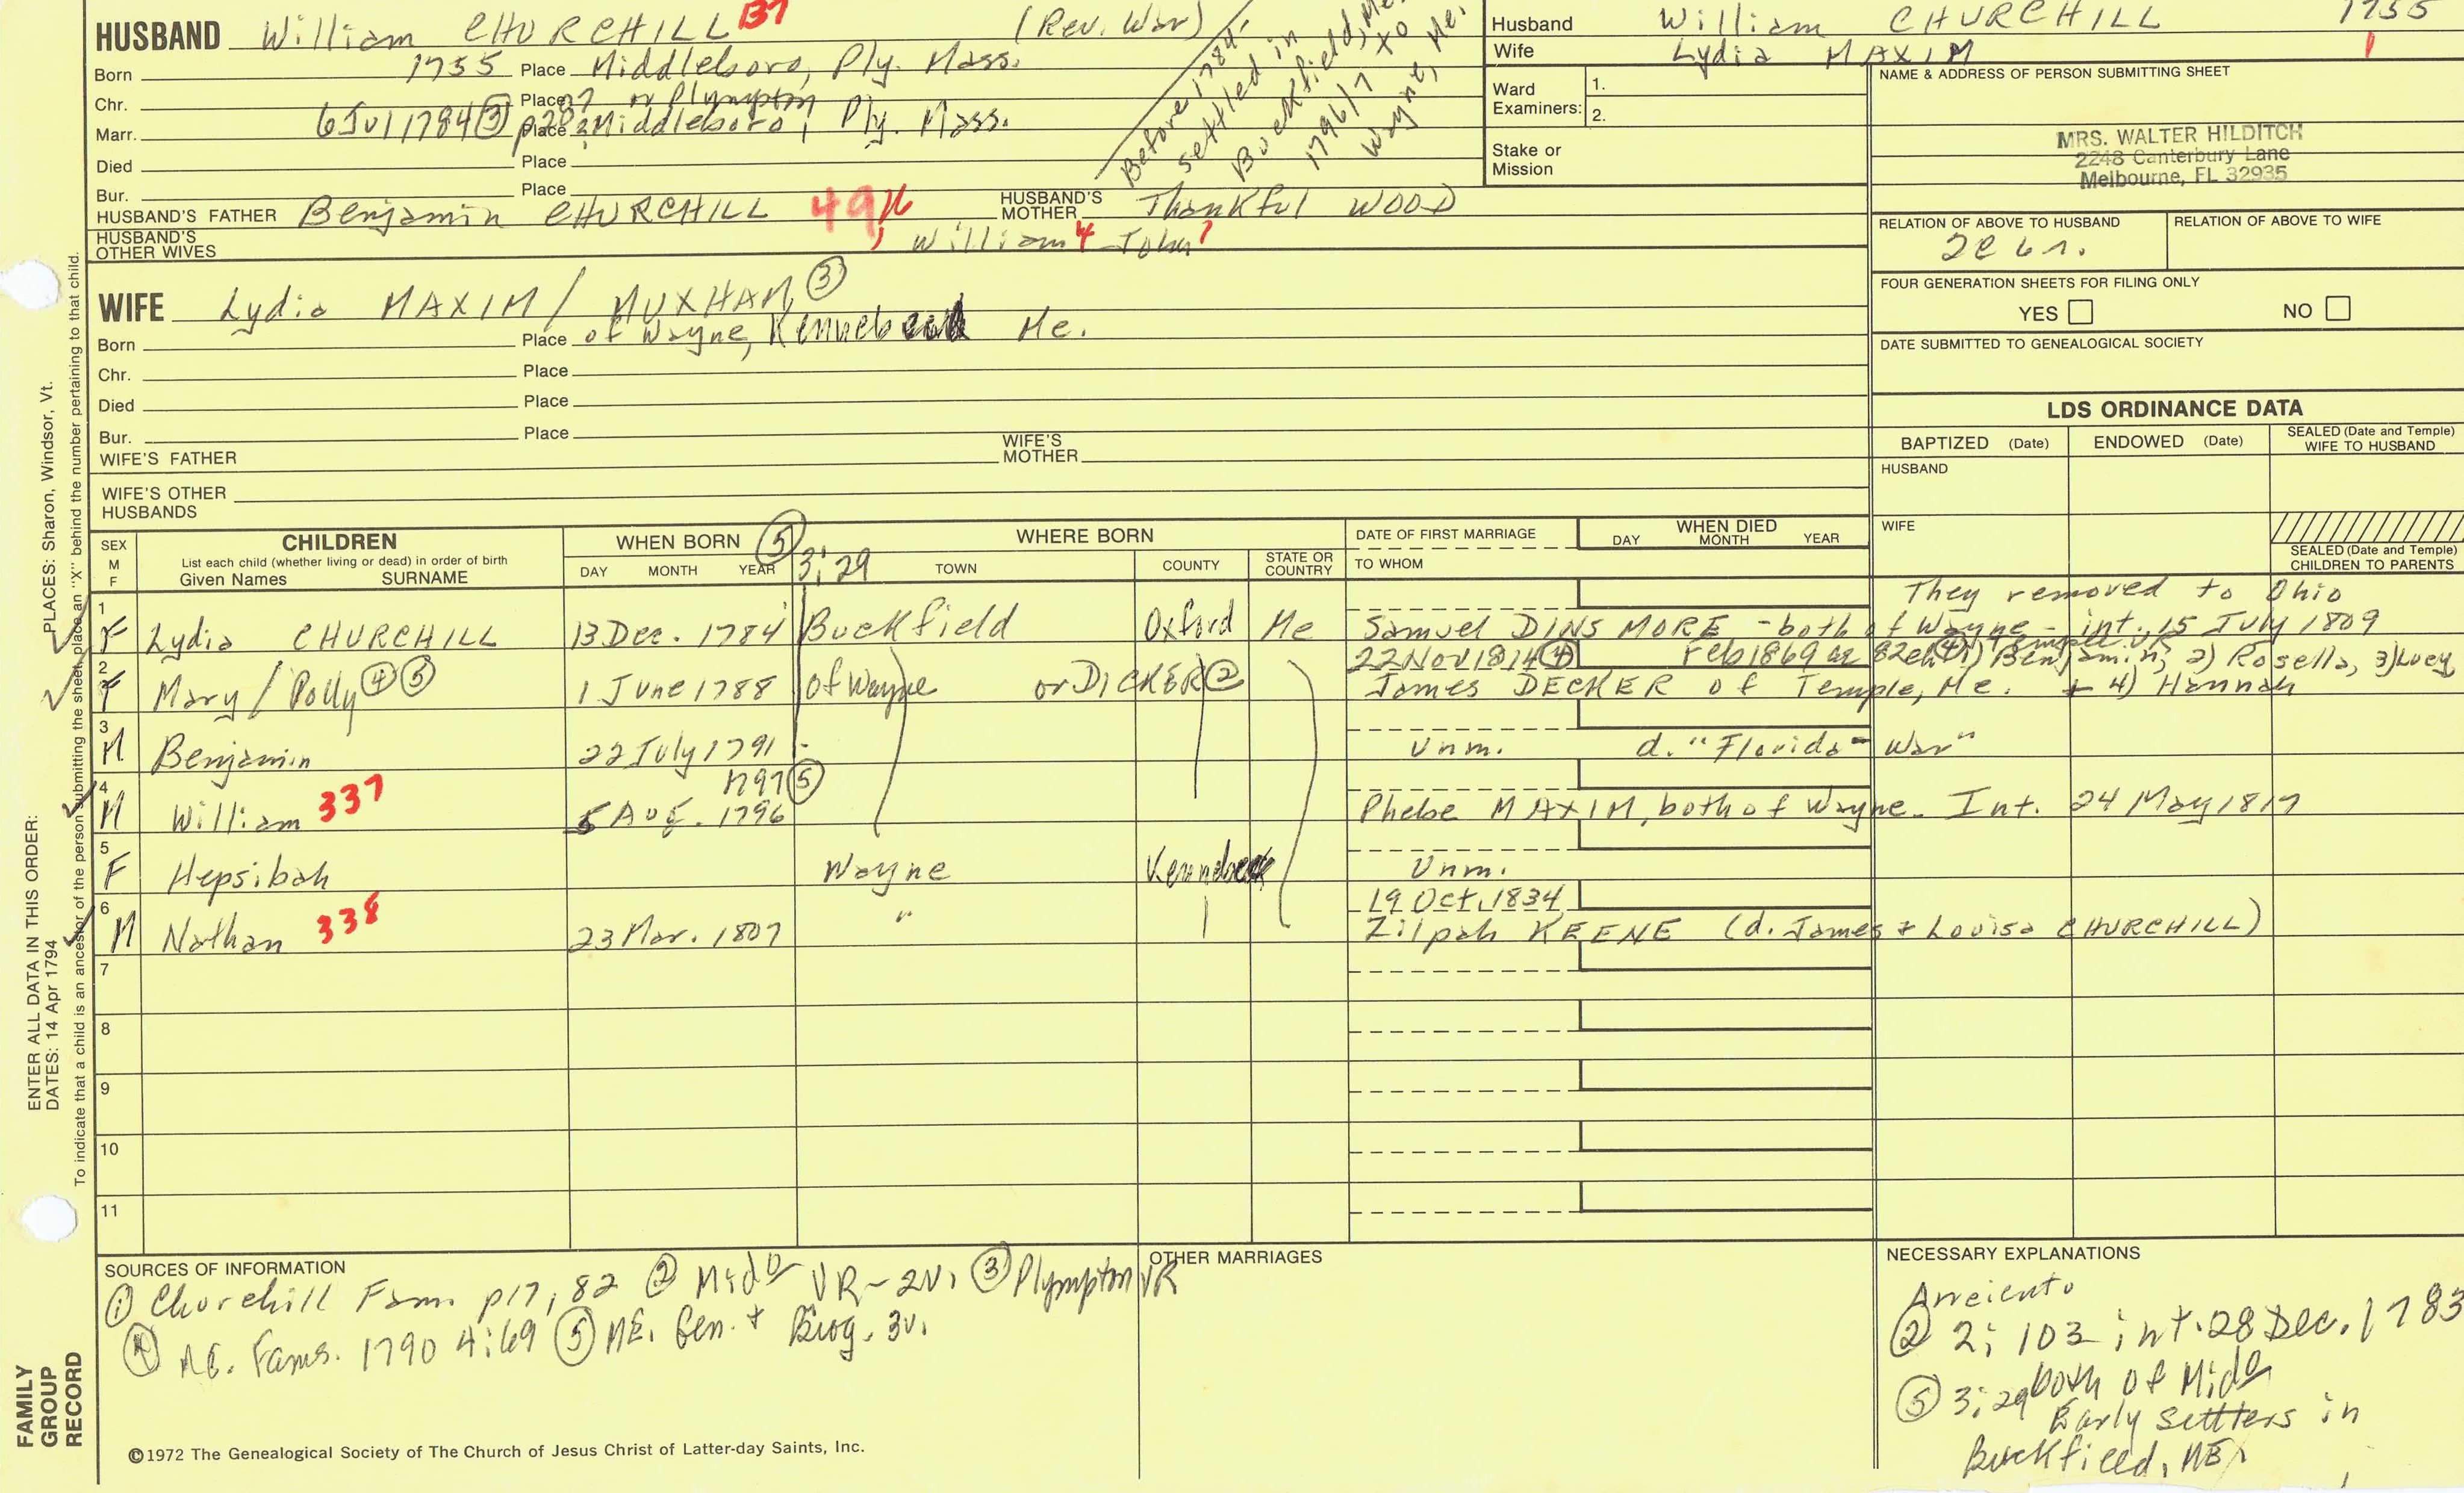 HUSBAND William CHURCHILL 137 (Rev. War)
Born 1755 Place Middleboro, Ply. Mass.
Chr. Place or Plympton
Marr. 6 Jul 1784 ③ p282 Place Middleboro, Ply. Mass.
Died Place
Bur. Place
Before 1784-
settled in
Buckfield, Me.
1796/7 to
Wayne, Me.
HUSBAND'S FATHER Benjamin CHURCHILL 49 HUSBAND'S MOTHER Thankful WOOD
HUSBAND'S OTHER WIVES William 4 John 1
Husband William CHURCHILL 1755
Wife Lydia MAXIM 1
Ward Examiners: 1.
2.
Stake or Mission
NAME & ADDRESS OF PERSON SUBMITTING SHEET
MRS. WALTER HILDITCH
2248 Canterbury Lane
Melbourne, FL 32935
RELATION OF ABOVE TO HUSBAND RELATION OF ABOVE TO WIFE
FOUR GENERATION SHEETS FOR FILING ONLY
YES NO
DATE SUBMITTED TO GENEALOGICAL SOCIETY
WIFE Lydia MAXIM / MUXHAM ③
Born Place of Wayne, Kennebec Me.
Chr. Place
Died Place
Bur. Place
WIFE'S FATHER WIFE'S MOTHER
WIFE'S OTHER HUSBANDS
LDS ORDINANCE DATA
BAPTIZED (Date) ENDOWED (Date) SEALED (Date and Temple) WIFE TO HUSBAND
HUSBAND
WIFE
SEALED (Date and Temple) CHILDREN TO PARENTS
SEX M F CHILDREN List each child (whether living or dead) in order of birth Given Names SURNAME
WHEN BORN ⑤ DAY MONTH YEAR 3:29 WHERE BORN TOWN COUNTY STATE OR COUNTRY
DATE OF FIRST MARRIAGE TO WHOM WHEN DIED DAY MONTH YEAR
They removed to Ohio
1 F Lydia CHURCHILL 13 Dec. 1784 Buckfield Oxford Me Samuel DINSMORE - both of Wayne - int. 15 July 1809
22 Nov 1814 ④ Feb 1869 ae 82 ch 1) Benjamin, 2) Rosella, 3) Lucy
2 F Mary / Polly ④ ⑤ 1 June 1788 of Wayne or DICKER ② James DECKER of Temple, Me. + 4) Hannah
3 M Benjamin 22 July 1791 Unm. d. "Florida - War"
1797 ⑤
4 M William 337 5 Aug. 1796 Phebe MAXIM, both of Wayne. Int. 24 May 1817
5 F Hepsibah Wayne Kennebec Unm.
19 Oct. 1834
6 M Nathan 338 23 Mar. 1807 " Zilpah KEENE (d. James + Louisa CHURCHILL)
7
8
9
10
11
SOURCES OF INFORMATION
① Churchill Fam. p17, 82 ② Midº VR - 2v. ③ Plympton VR
④ ME. Fams. 1790 4:69 ⑤ ME. Gen. + Biog. 3v.
OTHER MARRIAGES
NECESSARY EXPLANATIONS
② 2; 103 int. 28 Dec. 1783
both of Midº
⑤ 3:29 Early settlers in
Buckfield, ME.
©1972 The Genealogical Society of The Church of Jesus Christ of Latter-day Saints, Inc.
FAMILY GROUP RECORD
ENTER ALL DATA IN THIS ORDER:
DATES: 14 Apr 1794
PLACES: Sharon, Windsor, Vt.
To indicate that a child is an ancestor of the person submitting the sheet, place an "X" behind the number pertaining to that child.